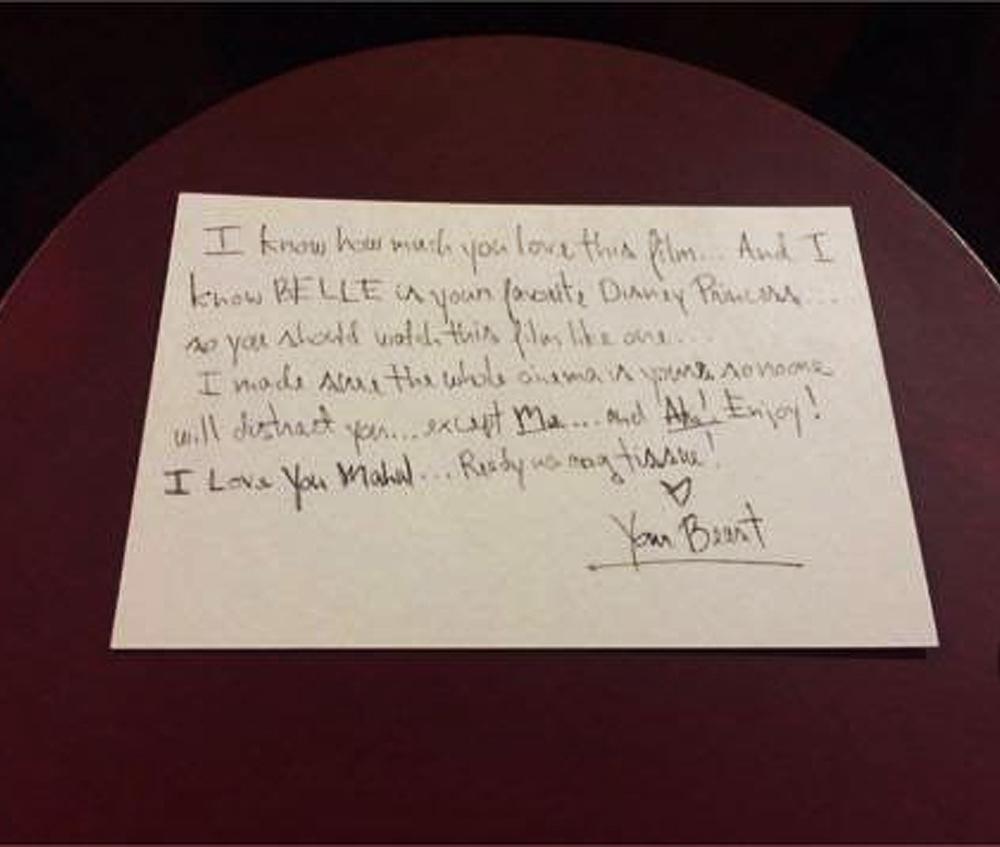 I know how much you love this film... And I
know BELLE is your favorite Disney Princess...
so you should watch this film like one...
I made sure the whole cinema is yours so no one
will distract you... except Me... and Enjoy!
I Love You Mahal... Ready mo mag tissue!
Your Beast